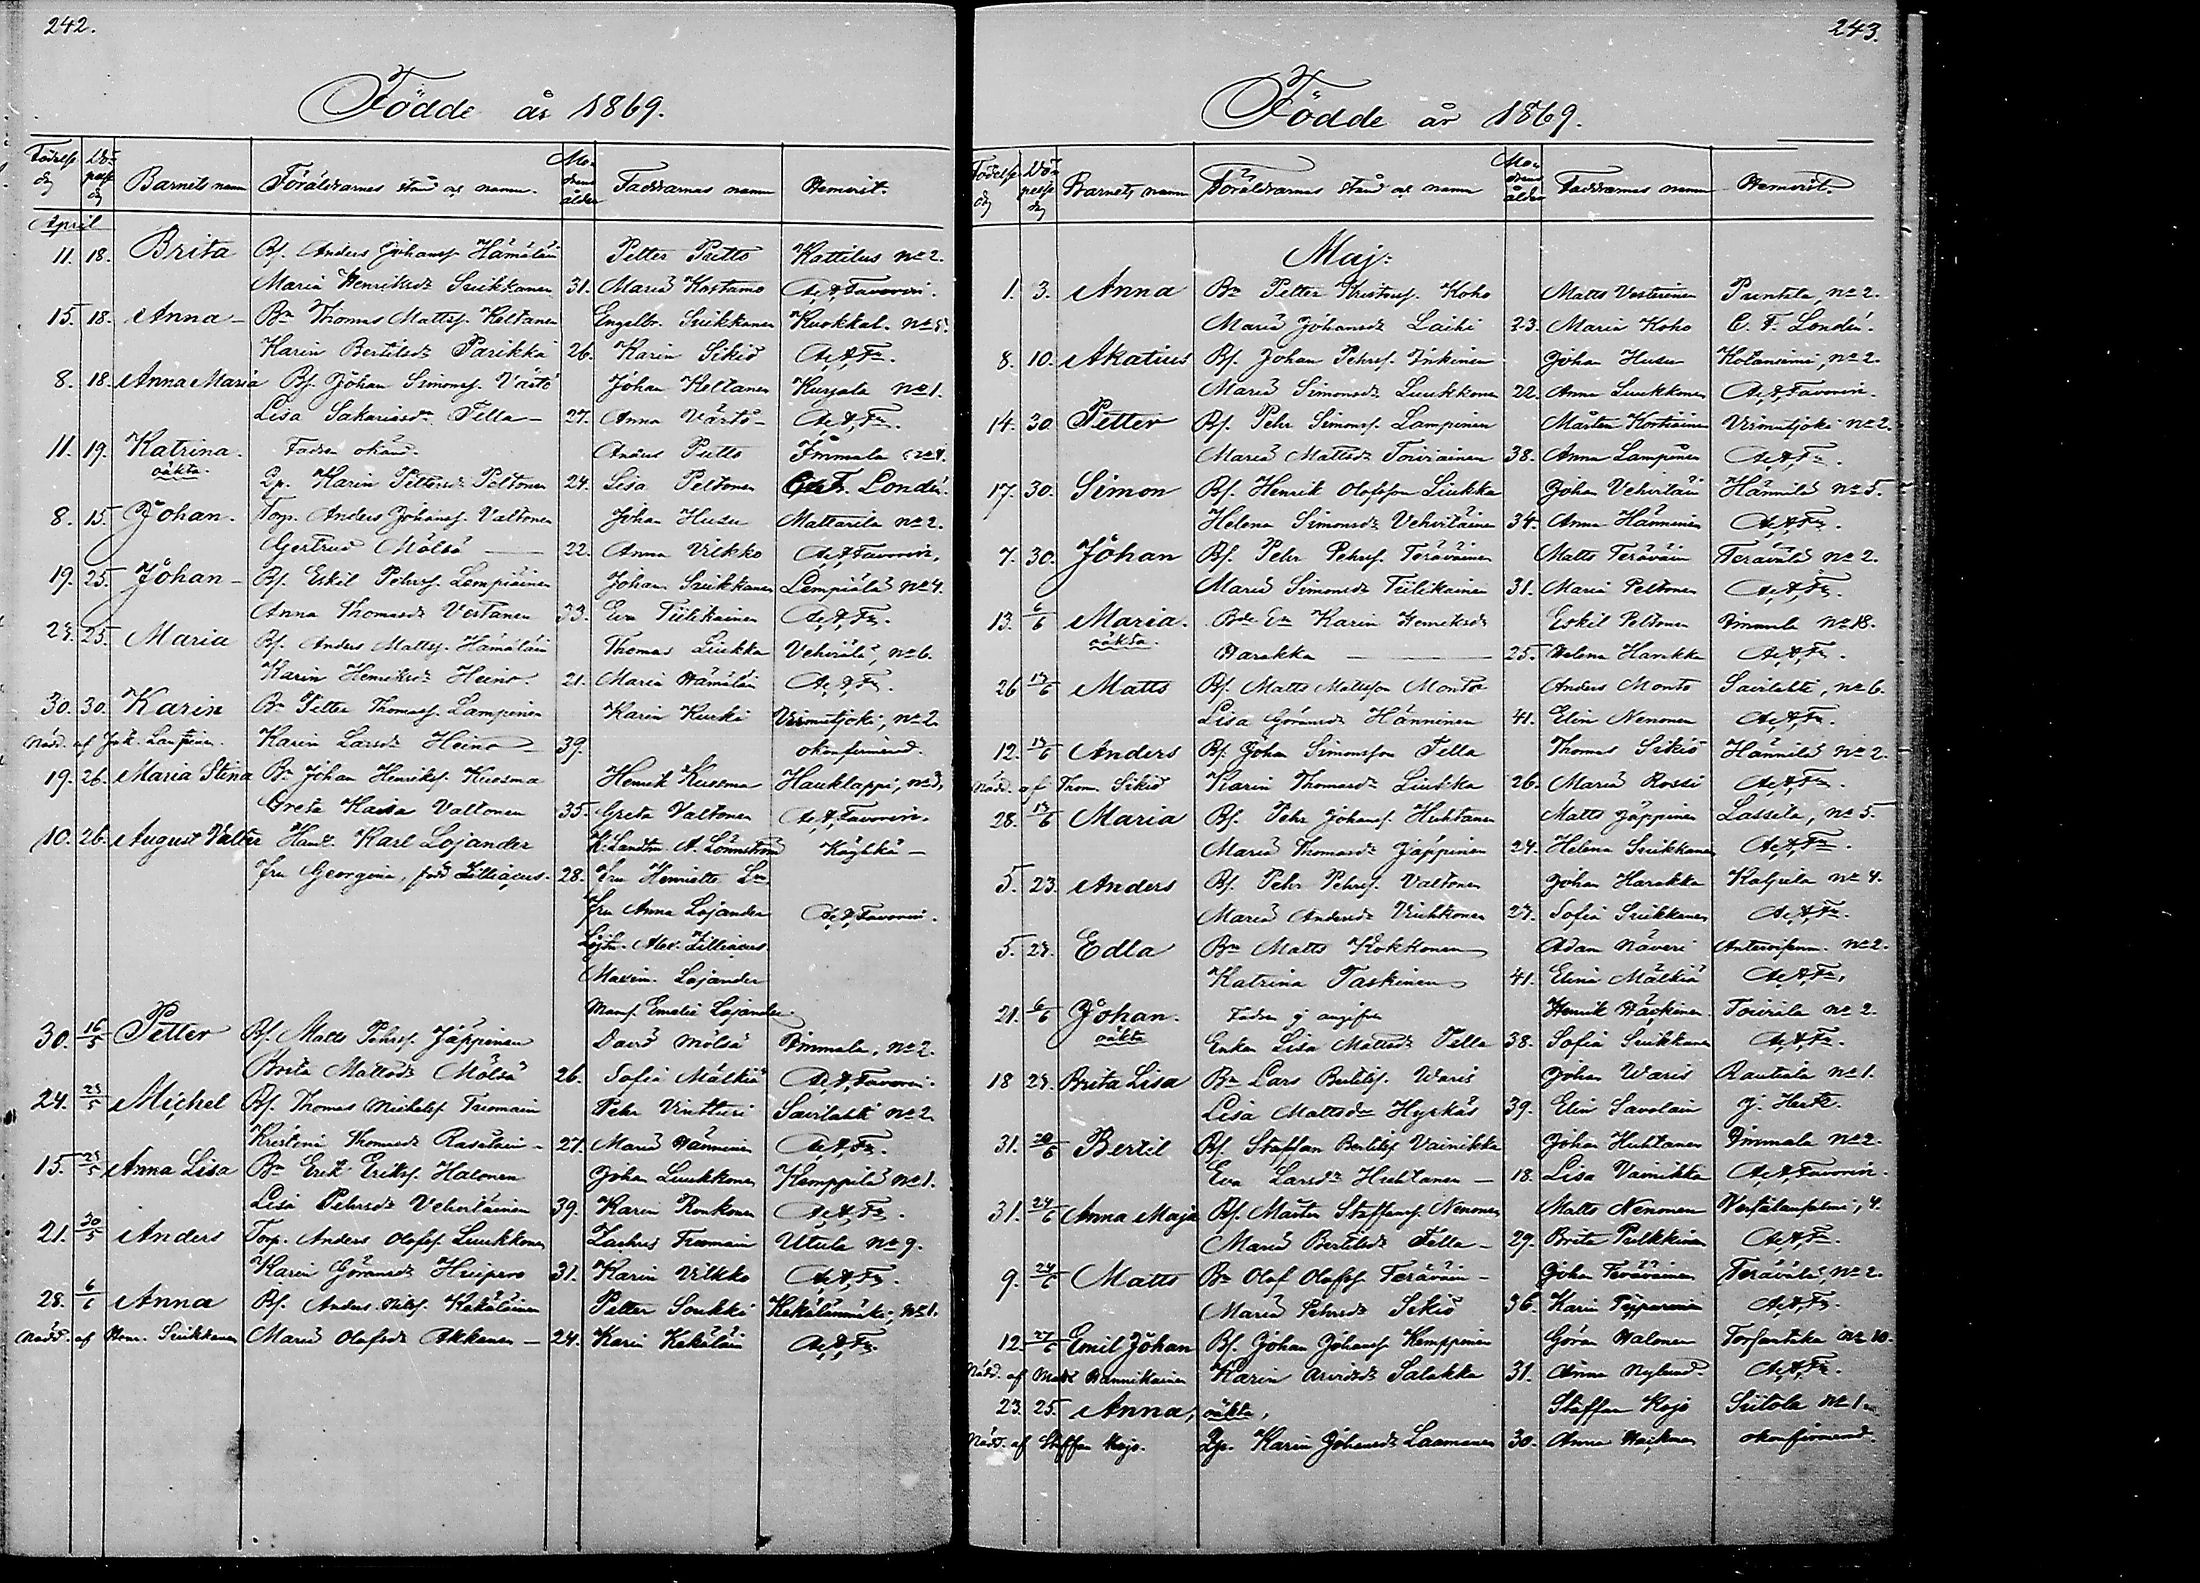 242.
Födde år 1869.
Födelse dag Döpelse dag Barnets namn Föräldrarnes stånd och namn. Modrens ålder Faddrarnes namn Hemvist.
April
11. 18. Brita Bf. Anders Johansf. Hämäläin Petter Putto Kattilus No 2.
Maria Henriksdr Suikkanen 31. Maria Kostamo A, A, Favorin.
15. 18. Anna Bn Thomas Mattsf. Keltanen Engelbr. Suikkanen Kuokkal. No 5.
Karin Bertilsdr Parikka 26. Karin Sikiö A, A, Fn.
8. 18. Anna Maria Bf. Johan Simonsf. Värtö Johan Keltanen Kurjala No 1.
Lisa Sakariasdr Tella 27. Anna Värtö A, A, Fn.
11. 19. Katrina. Fadren okänd. Anders Putto Immala No 4.
oäkta. Pp. Karin Pettersdr Peltonen 24. Lisa Peltonen Londén.
8. 15. Johan. Torp. Anders Johansf. Valtonen Johan Husu Mattarila No 2.
Gertrud Mölsä 22. Anna Vilkko A, A, Favorin.
19. 25. Johan Bf. Eskil Pehrsf. Lempiäinen Johan Suikkanen Lempiälä No 4.
Anna Thomasdr Vertanen 33. Eva Tiilikainen A, A, Fn.
23. 25. Maria Bf. Anders Mattsf. Hämäläin Thomas Liukka Vehviälä, No 6.
Karin Henriksdr Heino. 21. Maria Hämäläin A, A, Fn.
30. 30. Karin Bn Petter Thomasf. Lampinen Karin Kurki Virmutjoki, No 2.
Nödd. af Joh. Lampinen. Karin Larsdr Heino 39. okonfirmerad.
19. 26. Maria Stina Bn Johan Henriksf. Kuosma Henrik Kuosma Hauklappi, No 3,
Greta Kaisa Valtonen 35. Greta Valtonen A, A, Favorin.
10. 26. August Valter Karl Lojander A. Lönnström Käyhkä
fru Georgina, född Lilliacus. 28. fru Henriette
fru Anna Lojander A, A, Favorin.
Löjtn. Alex. Lilliacus.
Maxim. Lojander
Mams. Emelie Lojander
30. 16/5 Petter Bf. Matts Pehrsf. Jäppinen David Mölsä Immala, No 2.
Brita Mattsdr Mölsä 26. Sofia Mälkiä A, A, Favorin.
24. 23/5 Michel Bf. Thomas Michelsf. Tuomain Pehr Vinttari Sairlahti No 2.
Kristina Thomasdr Rasalain 27. Maria Hänninen A, A, Fn.
15. 23/5 Anna Lisa Bn Erik Eriksf. Halonen Johan Luukkonen Kemppilä No 1.
Lisa Pehrsdr Vehviläinen 39. Karin Ronkonen A, A, Fn.
21. 30/5 Anders Torp. Anders Olofsf. Luukkonen Zachris Tuomain Utula No 9.
Karin Göransdr Huiperi 31. Karin Vilkko A, A, Fn.
28. 6/6 Anna Bf. Anders Nilsf. Kekäläinen Petter Soukka Kekälänmäki, No 1.
Nödd. af Hen. Suikkanen Maria Olofsdr Akkanen 24. Karin Kekäläin A, A, Fn.
243.
Födde år 1869.
Födelse dag Döpelse dag Barnets namn Föräldrarnes stånd och namn Modrens ålder Faddrarnes namn Hemvist.
Maj:
1. 3. Anna Bn Petter Kristersf. Koho Matts Vesterinen Puntala, No 2.
Maria Johansdr Laihi 23. Maria Koho C. F. Londén.
8. 10. Akatius Bf. Johan Pehrsf. Inkinen Johan Husu Kotaniemi, No 2.
Maria Simonsdr Luukkonen 22. Anna Luukkonen A, A, Favorin.
14. 30. Petter Bf. Pehr Simonsf. Lampinen Mårten Kostiainen Virmutjoki No 2.
Maria Mattsdr Toiviainen 38. Anna Lampinen A, A, Fn.
17. 30. Simon Bf. Henrik Olofsson Liukka Johan Vehviläin Hännilä No 5.
Helena Simonsdr Vehviläinen 34. Anna Hänninen A, A, Fn.
7. 30. Johan Bf. Pehr Pehrsf. Teräväinen Matts Teräväin Terävälä No 2.
Maria Simonsdr Tiilikainen 31. Maria Peltonen A, A, Fn.
13. 6/6 Maria. Karin Henriksdr Eskil Peltonen Immala No 18.
oäkta. Harakka 25. Helena Harakka A, A, Fn.
26 13/6 Matts Bf. Matts Mattsson Monto Anders Monto Sairlahti, No 6.
Lisa Göransdr Hänninen 41. Elin Nenonen A, A, Fn.
12. 13/6 Anders Bf. Johan Simonsson Tella Thomas Sikiö Hännilä No 2.
Nödd. af Thom. Sikiö Karin Thomasdr Liukka 26. Maria Rossi A, A, Fn.
28. 13/6 Maria Bf. Pehr Johansf. Huhtanen Matts Jäppinen Lassila, No 5.
Maria Thomasdr Jäppinen 24. Helena Suikkanen A, A, Fn.
5. 23. Anders Bf. Pehr Pehrsf. Valtonen Johan Harakka Kalpila No 4.
Maria Andersdr Vauhkonen 27. Sofia Suikkanen A, A, Fn.
5. 27. Edla Bn Matts Kokkonen Adam Näveri No 2.
Katrina Taskinen 41. Elina Mälkiä A, A, Fn.
21. 6/6 Johan. Fadren ej angifven Henrik Häckinen Toivila No 2.
oäkta Enkan Lisa Mattsdr Tella 38. Sofia Suikkanen A, A, Fn.
18 27. Brita Lisa Bn Lars Bertilsf. Waris Johan Waris Rautiala No 1.
Lisa Mattsdr Hyrkäs 39. Elin Savolain J. Hertz.
31. 20/6 Bertil Bf. Staffan Bertilsf. Vainikka Johan Huhtanen Immala No 2.
Eva Larsdr Huhtanen 18. Lisa Vainikka A, A, Favorin.
31. 24/6 Anna Maja Bf. Mårten Staffansf. Nenonen Matts Nenonen 4.
Maria Bertilsdr Tella 29. Brita Pulkkinen A, A, Fn.
9. 24/6 Matts Bn Olof Olofsf. Teräväin Johan Teräväinen Terävälä, No 2.
Maria Pehrsdr Sikiö 36. Karin A, A, Fn.
12 27/6 Emil Johan Bf. Johan Johansf. Kemppinen Göran Halonen Torsantaka No 10.
Nödd. af Matts Hannikainen Karin Arvidsdr Salakka 31. Anna Nylund. A, A, Fn.
23. 25. Anna, oäkta, Staffan Kojo Siitola No 1.
Nödd. af Staffan Kojo. Pp. Karin Johansdr Laamanen 30. Anna Hackman okonfirmerad.